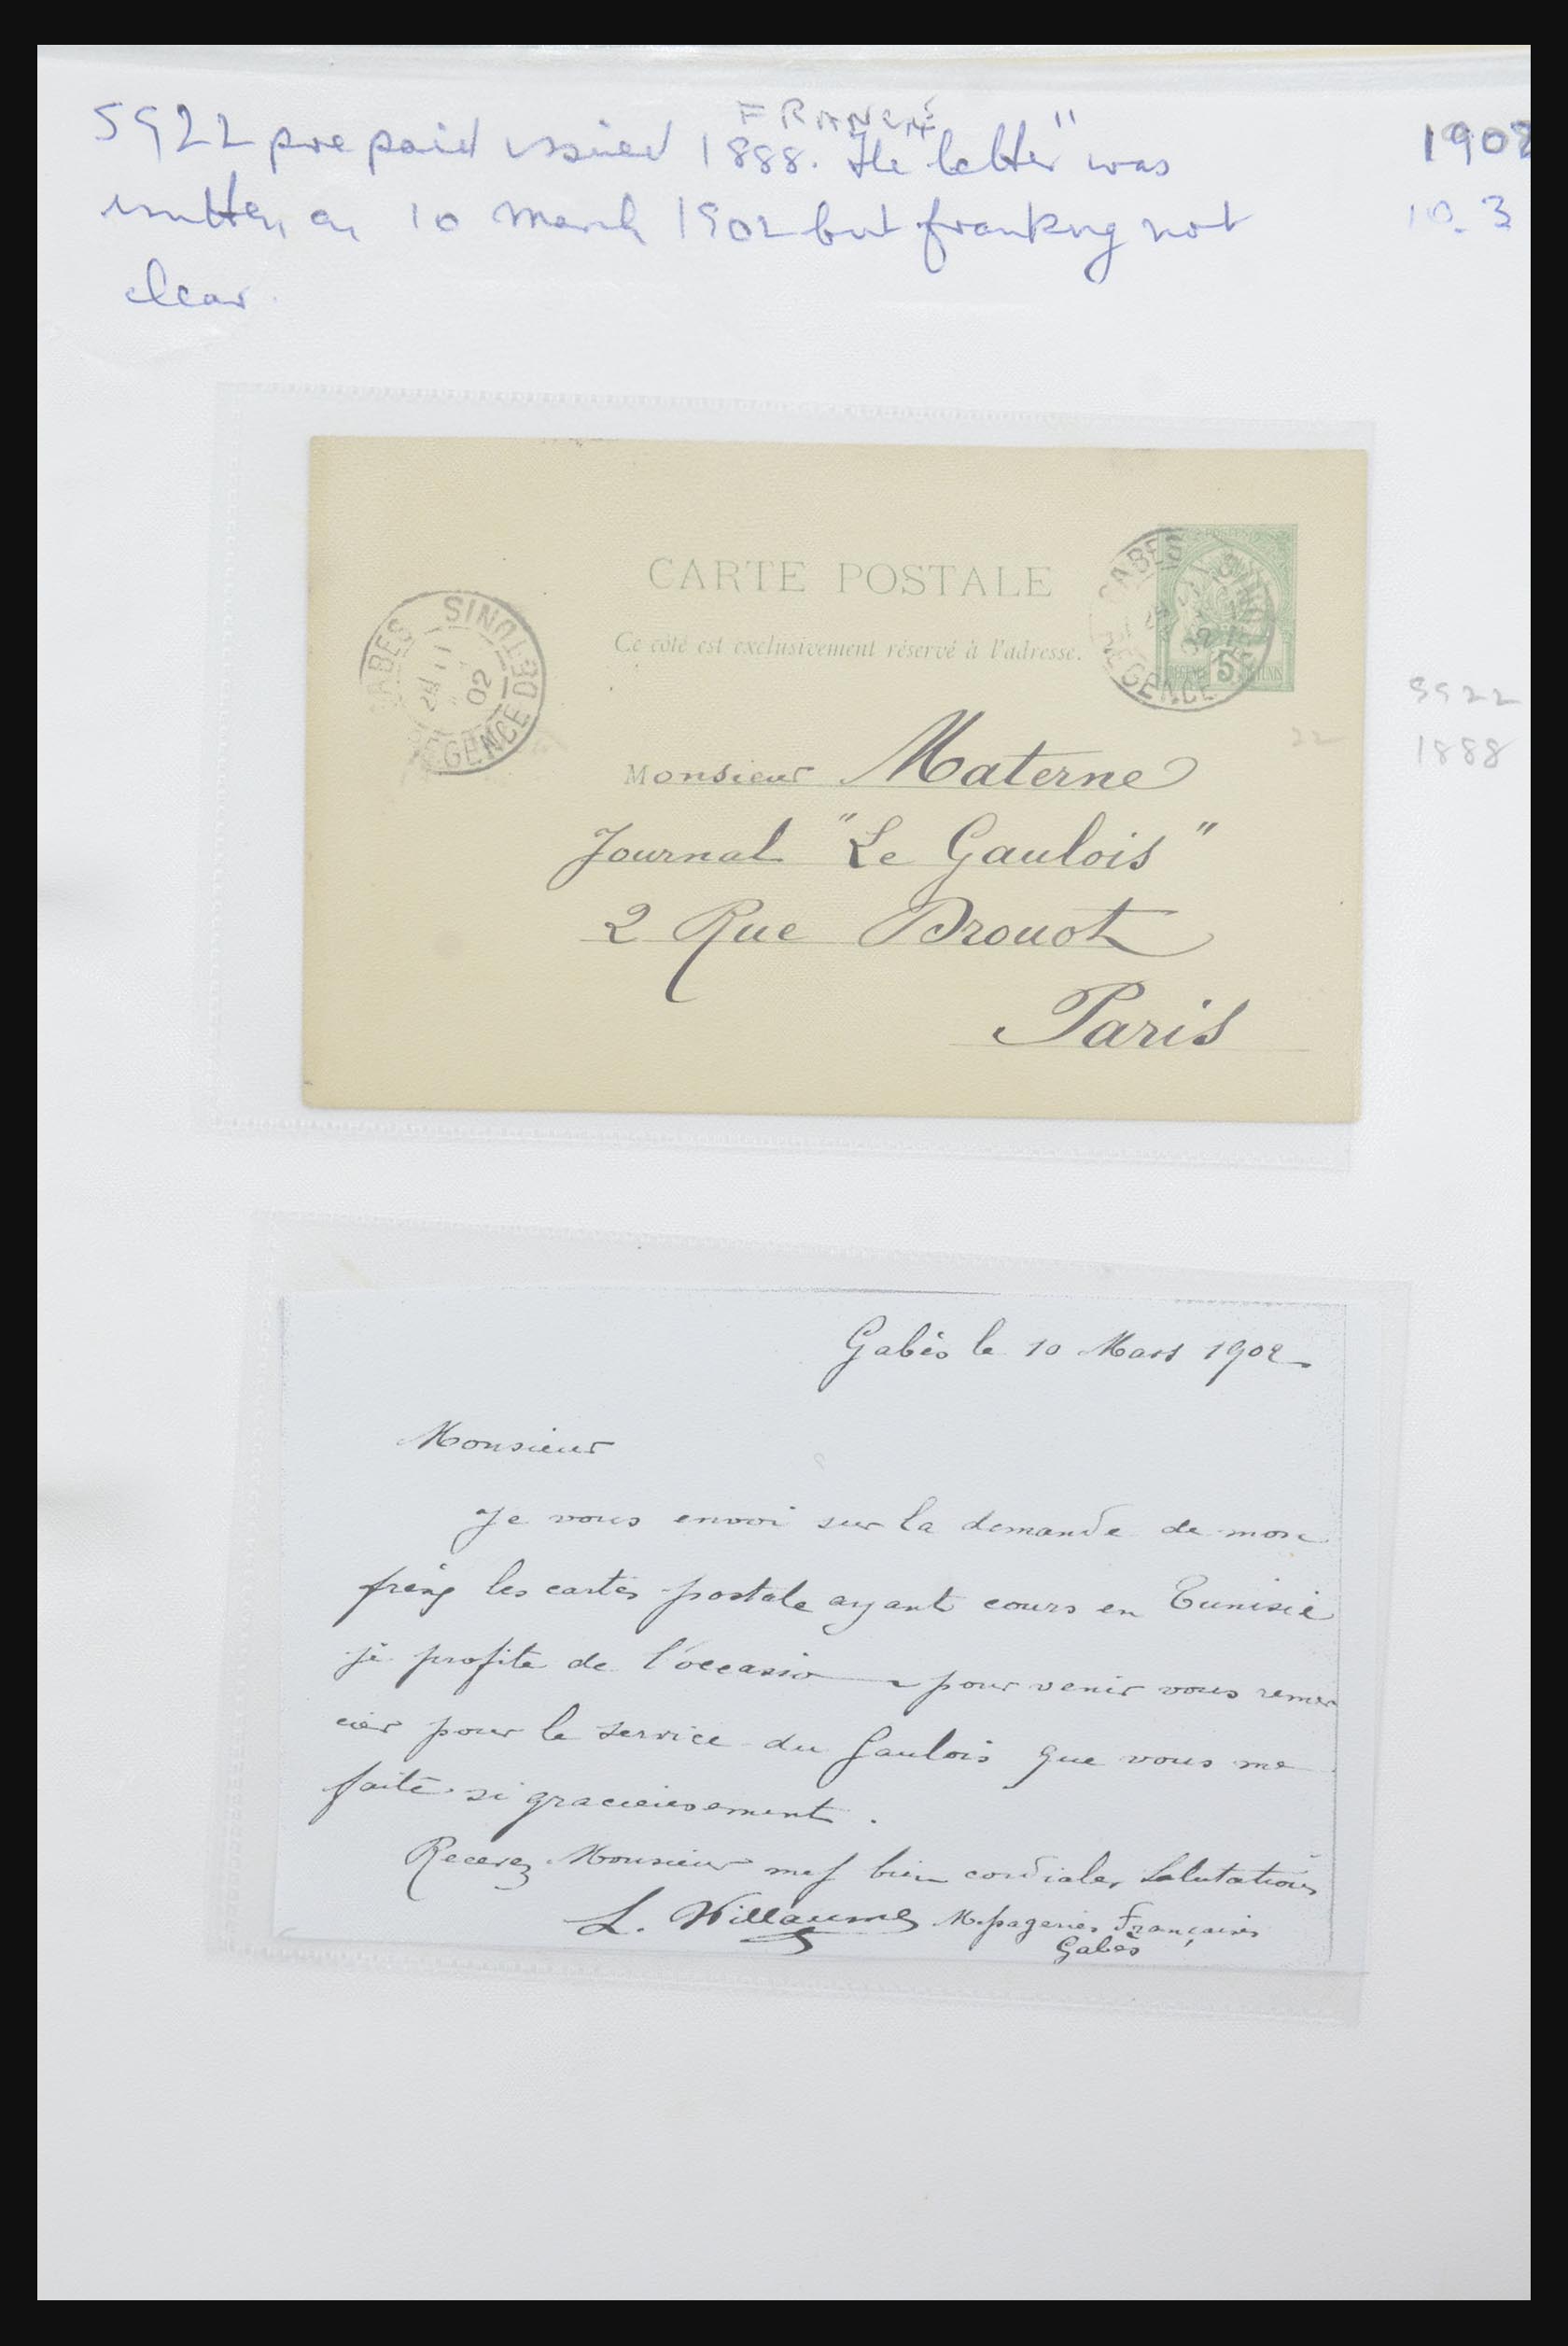 FRANCE
SG22 prepaid issued 1888. The "letter" was
written on 10 March 1902 but franking not
clear.
1902
10.3
CARTE POSTALE
Ce côté est exclusivement réservé à l'adresse.
GABES
RÉGENCE DE TUNIS
02
GABES
RÉGENCE DE TUNIS
02
POSTES
RÉGENCE 5 DE TUNIS
22
SG22
1888
Monsieur Materne
Journal "Le Gaulois"
2 Rue Drouot
Paris
Gabès le 10 Mars 1902
Monsieur
Je vous envoi sur la demande de mon
frère les cartes postale ayant cours en Tunisie
je profite de l'occasion pour venir vous remer
cier pour le service du Gaulois que vous me
faite si gracieusement.
Recevez Monsieur mes bien cordiales Salutations
L. Willaume Messageries Françaises
Gabès